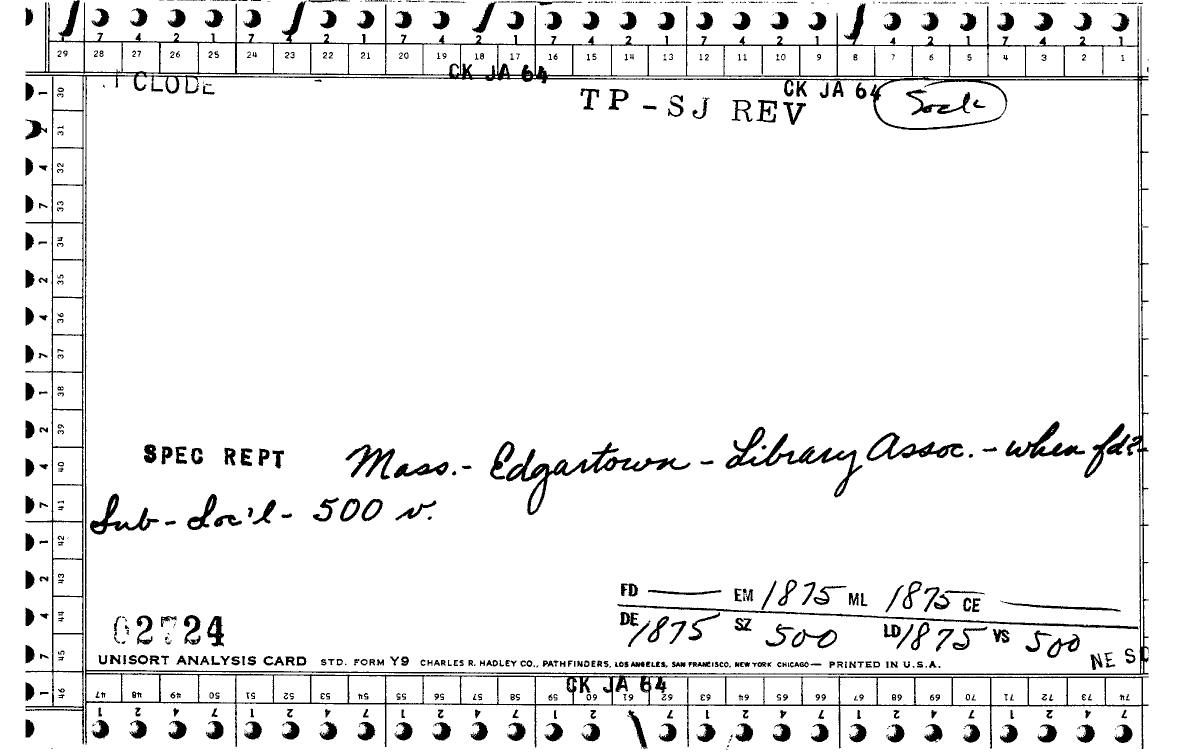 7 4 2 1 7 4 2 1 7 4 2 1 7 4 2 1 7 4 2 1 7 4 2 1 7 4 2 1
29 28 27 26 25 24 23 22 21 20 19 18 17 16 15 14 13 12 11 10 9 8 7 6 5 4 3 2 1
CK JA 64
CLODE
CK JA 64
TP-SJ REV
30
31
32
33
34
35
36
37
38
39
40
41
42
43
44
45
46
SPEC REPT Mass. - Edgartown - Library Assoc. - when fd? -
Sub - Soc'l - 500 v.
FD —— EM 1875 ML 1875 CE ——
DE 1875 SZ 500 LD 1875 VS 500
02724
NE SO
UNISORT ANALYSIS CARD STD. FORM Y9 CHARLES R. HADLEY CO., PATHFINDERS, LOS ANGELES, SAN FRANCISCO, NEW YORK CHICAGO — PRINTED IN U.S.A.
CK JA 64
47 48 49 50 51 52 53 54 55 56 57 58 59 60 61 62 63 64 65 66 67 68 69 70 71 72 73 74
1 2 4 7 1 2 4 7 1 2 4 7 1 2 4 7 1 2 4 7 1 2 4 7 1 2 4 7